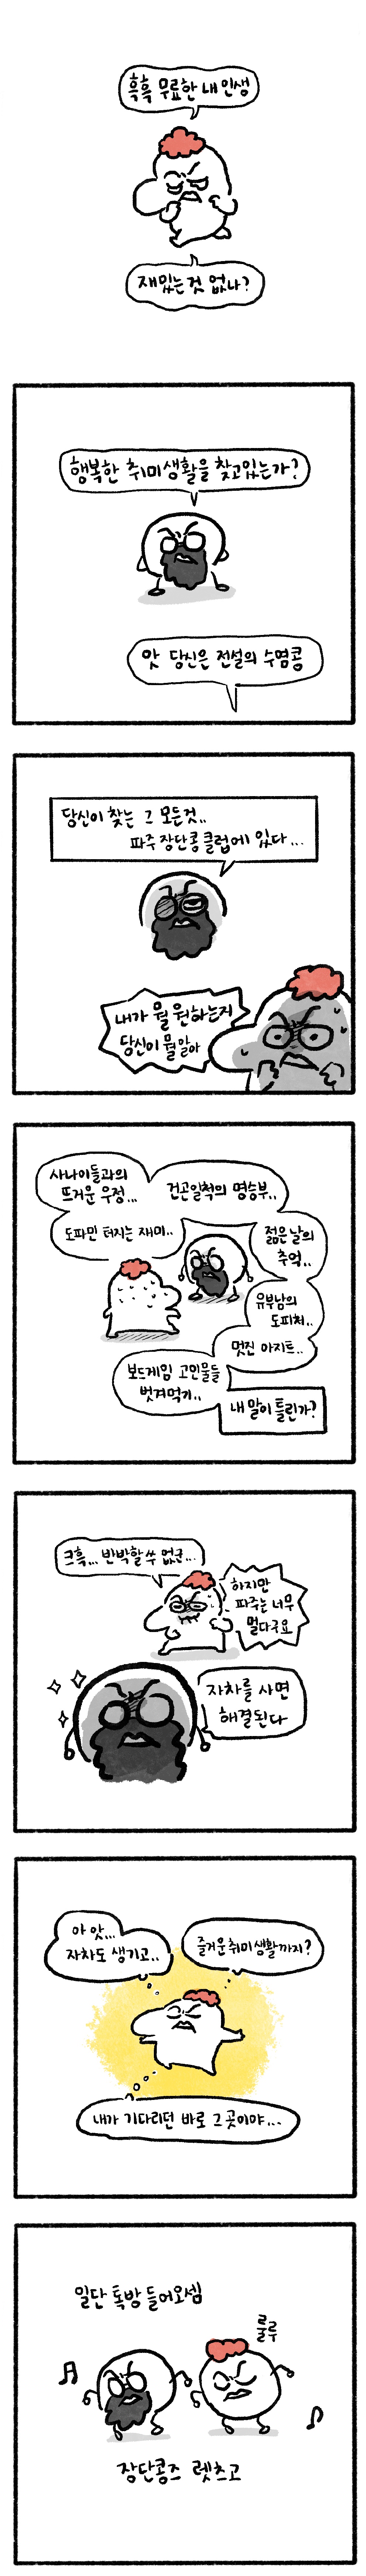 흑흑 무료한 내 인생
재밌는것 없나?
행복한 취미생활을 찾고있는가?
앗 당신은 전설의 수염콩
당신이 찾는 그 모든것..
파주 장단콩 클럽에 있다...
내가 뭘 원하는지
당신이 뭘 알아
사나이들과의
뜨거운 우정...
건곤일척의 명승부..
도파민 터지는 재미..
젊은날의
추억..
유부남의
도피처..
멋진 아지트..
보드게임 고인물들
벗겨먹기..
내 말이 틀린가?
크흑... 반박할쑤 없군...
하지만
파주는 너무
멀다구요
자차를 사면
해결된다
아 앗...
자차도 생기고..
즐거운 취미생활까지?
내가 기다리던 바로 그 곳이야...
일단 톡방 들어오셈
룰루
장단콩즈 렛츠고